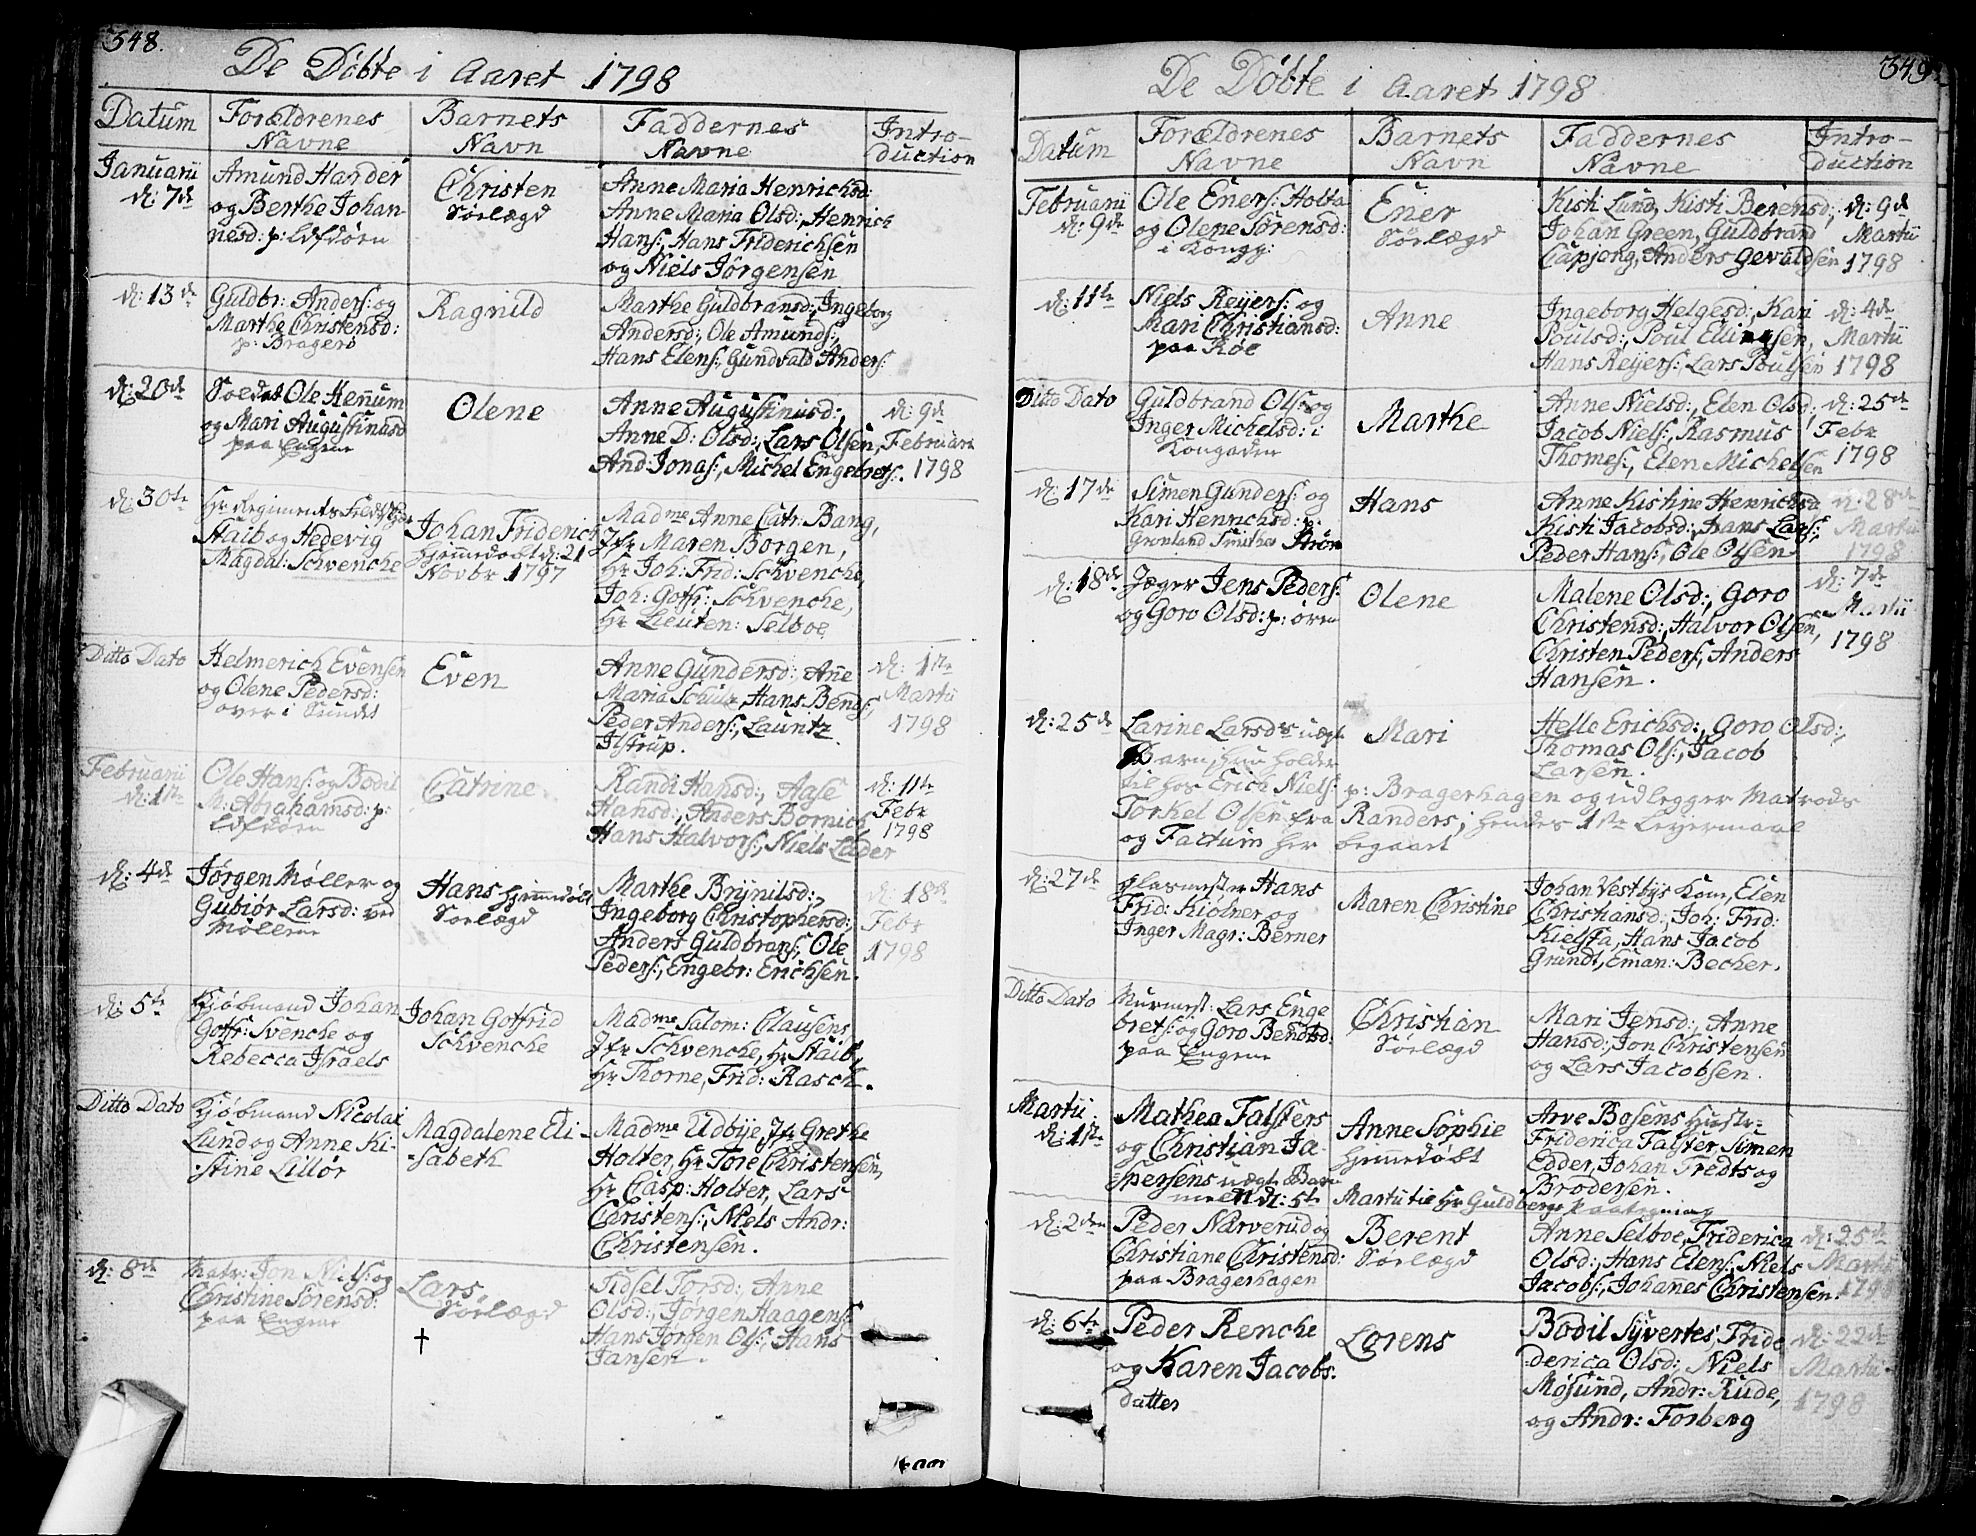 348.
De Döbte i Aaret 1798
Datum
Forældrenes
Navne
Barnets
Navn
Faddernes
Navne
Intro-
duction
Januarii
d: 7de
Amund Harder
og Berthe Johan
nesd: p:
Christen
Sørlægd
Anne Maria Henrichsd:
Anne Maria Olsd:, Henrich
Hans:, Hans Friderichsen
og Niels Jörgensen
d: 13de
Guldbr: Anders: og
Marthe Christensd:
p: Bragerö
Ragnild
Marthe Guldbransd:, Ingeborg
Andersd:, Ole Amunds:,
Hans Elens:, Gundvald Anders:
d: 20de
Ole Hennum
og Mari Augustinusd
paa Engene
Olene
Anne Augustinusd:,
Anne D: Olsd:, Lars Olsen,
And: Jonas:, Michel Engebrets:.
d: 9de
Februarii
1798
d: 30te
Hr Regiments
Staib og Hedevig
Magdal: Schvenche
Johan Friderich
hjemmedøbt d: 21
Novbr 1797
Madme Anne Catr: Bang,
Jfr Maren Borgen,
Hr Joh: Frid: Schvenche,
Joh: Gotfr: Schvenche,
Hr Lieuten: Selboe
Ditto Dato
Helmerich Evensen
og Olene Pedersd:
over i Sundet
Even
Anne Gundersd:, Ane
Maria Schultz, Hans Bends:,
Peder Anders:, Launtz
Ilstrup.
d: 1ste
Martii
1798
Februarii
d: 1ste
Ole Hans: og Bodil
M: Abrahamsd: p:
Catrine
Randi Hansd:, Aase
Hansd:, Anders Bornich
Hans Halvors:, Niels Lader
d: 11te
Febr
1798
d: 4de
Jörgen Möller og
Gubiör Larsd: ved
Möllene
Hans hjemmedöbt
Sørlægd
Marthe Brynilsd:,
Ingeborg Christophersd:
Anders Guldbrans:, Ole
Peders:, Engebr: Erichsen.
d: 18de
Febr
1798
d: 5te
Kjöbmand Johan
Gotfr: Svenche og
Rebecca Israels
Johan Gotfrid
Schvenche
Madme Salom: Clausens
Jfr Schvenche, Hr Staib,
Hr Thorne, Frid: Rasch.
Ditto Dato
Kjöbmand Nicolai
Lund og Anne Ki-
stine Lillör
Magdalene Eli-
sabeth
Madme Udbye, Jfr Grethe
Holter, Hr Tore Christensen,
Hr Casp: Holter, Lars
Christens:, Niels Andr:
Christensen.
d: 8de
Matr: Jon Niels: og
Christine Sörensd:
paa Engene
Lars
Sørlægd
†
Sidsel Torsd:, Anne
Olsd:, Jörgen Haagens:
Hans Jörgen Ols:, Hans
Jansen.
349
De Döbte i Aaret 1798
Datum
Forældrenes
Navne
Barnets
Navn
Faddernes
Navne
Intro-
duction
Februarii
d: 9de
Ole Eners: Holta
og Olene Sörensd:
i Kongg:
Ener
Sørlægd
Kisti Lund, Kisti Berensd:,
Johan Green, Guldbrand
Capjong, Anders Gevaldsen
d: 9de
Martii
1798
d: 11te
Niels Reyers: og
Mari Christiansd:
paa Röe
Anne
Ingeborg Helgesd:, Kari
Poulsd:, Poul Ellingsen,
Hans Reyers:, Lars Poulsen
d: 4de
Martii
1798
Ditto Dato
Guldbrand Ols: og
Inger Michelsd: i
Kongaden
Marthe
Anne Nielsd:, Elen Olsd:,
Jacob Niels:, Rasmus
Thomes:, Elen Michelsen
d: 25de
Febr
1798
d: 17de
Simen Gunders: og
Kari Henrichsd: p:
Grønland Smithes Ström
Hans
Anne Kistine Henrichsd
Kisti Jacobsd:, Hans Lars:,
Peder Hans:, Ole Olsen
d: 28de
Martii
1798
d: 18de
Jæger Jens Peders:
og Goro Olsd: p: ören
Olene
Malene Olsd:, Goro
Christensd:, Halvor Olsen,
Christen Peders:, Anders
Hansen.
d: 7de
Martii
1798
d: 25de
Larine Larsd:s uægte
Barn, hun holder
til hos Erich Niels: p: Bragerhagen og udlegger Matrods
Torkel Olsen fra Randers; hendes 1ste Leyermaal
og Factum her begaaet
Mari
Helle Erichsd:, Goro Olsd:,
Thomas Ols:, Jacob
Larsen.
d: 27de
Glasmester Hans
Frid: Kiölner og
Inger Magr: Berner
Maren Christine
Johan Vestbys Kone, Elen
Christiansd:, Joh: Frid:
Kielsta, Hans Jacob
Grundt, Eman: Becher.
Ditto Dato
Murmest: Lars Enge
brets: og Goro Bendtsd:
paa Engene
Christian
Sørlægd
Mari Jensd:, Anne
Hansd:, Jon Christensen
og Lars Jacobsen.
Martii
d: 1ste
Mathea Falsters
og Christian Ja-
spersens uægte Barn
d: 5te Martii til Hr Guldbergs Paategning
Anne Sophie
hjemmedöbt
Arve Bosens Hustr:
Friderica Falster, Simen
Edder, Johan Tredts og
Brodersen.
d: 2den
Peder Narverud og
Christiane Christensd:
paa Bragerhagen
Berent
Sørlægd
Anne Selboe, Friderica
Olsd:, Hans Elens:, Niels
Jacobs:, Johanes Christensen.
d: 25de
Martii
1798
d: 6te
Peder Renche
og Karen Jacobs.
datter
Lorens
Bodil Syvertes, Fride
derica Olsd:, Niels
Mosund, Andr: Rude,
og Andr: Forberg
d: 22de
Martii
1798